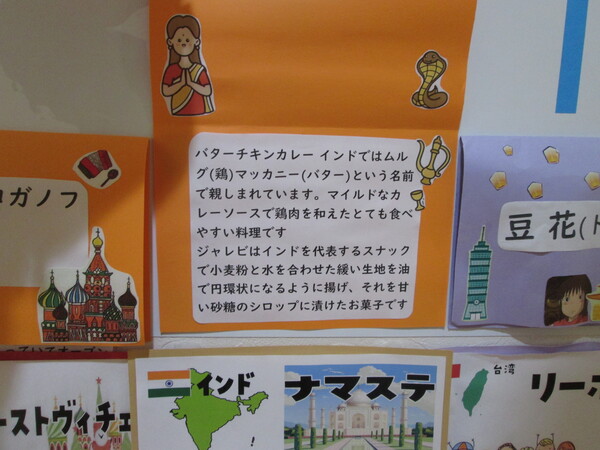 バターチキンカレー インドではムル
グ(鶏)マッカニー(バター)という名前
で親しまれています。マイルドなカ
レーソースで鶏肉を和えたとても食べ
やすい料理です
ジャレビはインドを代表するスナック
で小麦粉と水を合わせた緩い生地を油
で円環状になるように揚げ、それを甘
い砂糖のシロップに漬けたお菓子です
ロガノフ
豆花(
インド
ナマステ
ーストヴィチェ
台湾
リーホ